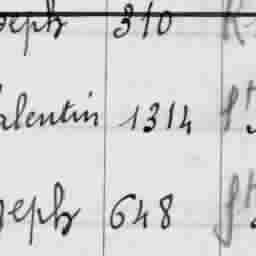 oseph 310
alentin 1314 St
seph 648 St